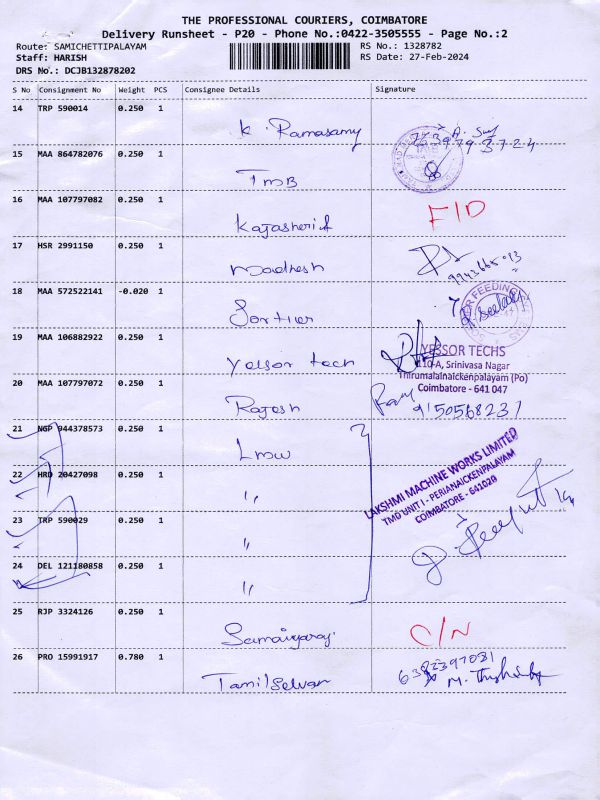 THE PROFESSIONAL COURIERS, COIMBATORE
Delivery Runsheet - P20 - Phone No.:0422-3505555 - Page No.:2
Route: SAMICHETTIPALAYAM
RS No.: 1328782
Staff: HARISH
RS Date: 27-Feb-2024
DRS No.: DCJB132878202
S No Consignment No Weight PCS Consignee Details Signature
14 TRP 590014 0.250 1
K. Ramasamy
15 MAA 864782076 0.250 1
TMB
16 MAA 107797082 0.250 1
F/D
17 HSR 2991150 0.250 1
Madhesh
18 MAA 572522141 -0.020 1
Sortier
19 MAA 106882922 0.250 1
Yessor tech
YESSOR TECHS
110-A, Srinivasa Nagar
Thirumalainaickenpalayam (Po)
Coimbatore - 641 047
20 MAA 107797072 0.250 1
Rajesh
9150568231
21 NGP 944378573 0.250 1
Lmw
LAKSHMI MACHINE WORKS LIMITED
TMG UNIT I - PERIANAICKENPALAYAM
COIMBATORE - 641020
22 HRD 20427098 0.250 1
"
23 TRP 590029 0.250 1
"
24 DEL 121180858 0.250 1
"
25 RJP 3324126 0.250 1
C/N
26 PRO 15991917 0.780 1
Tamilselvan
6382397081